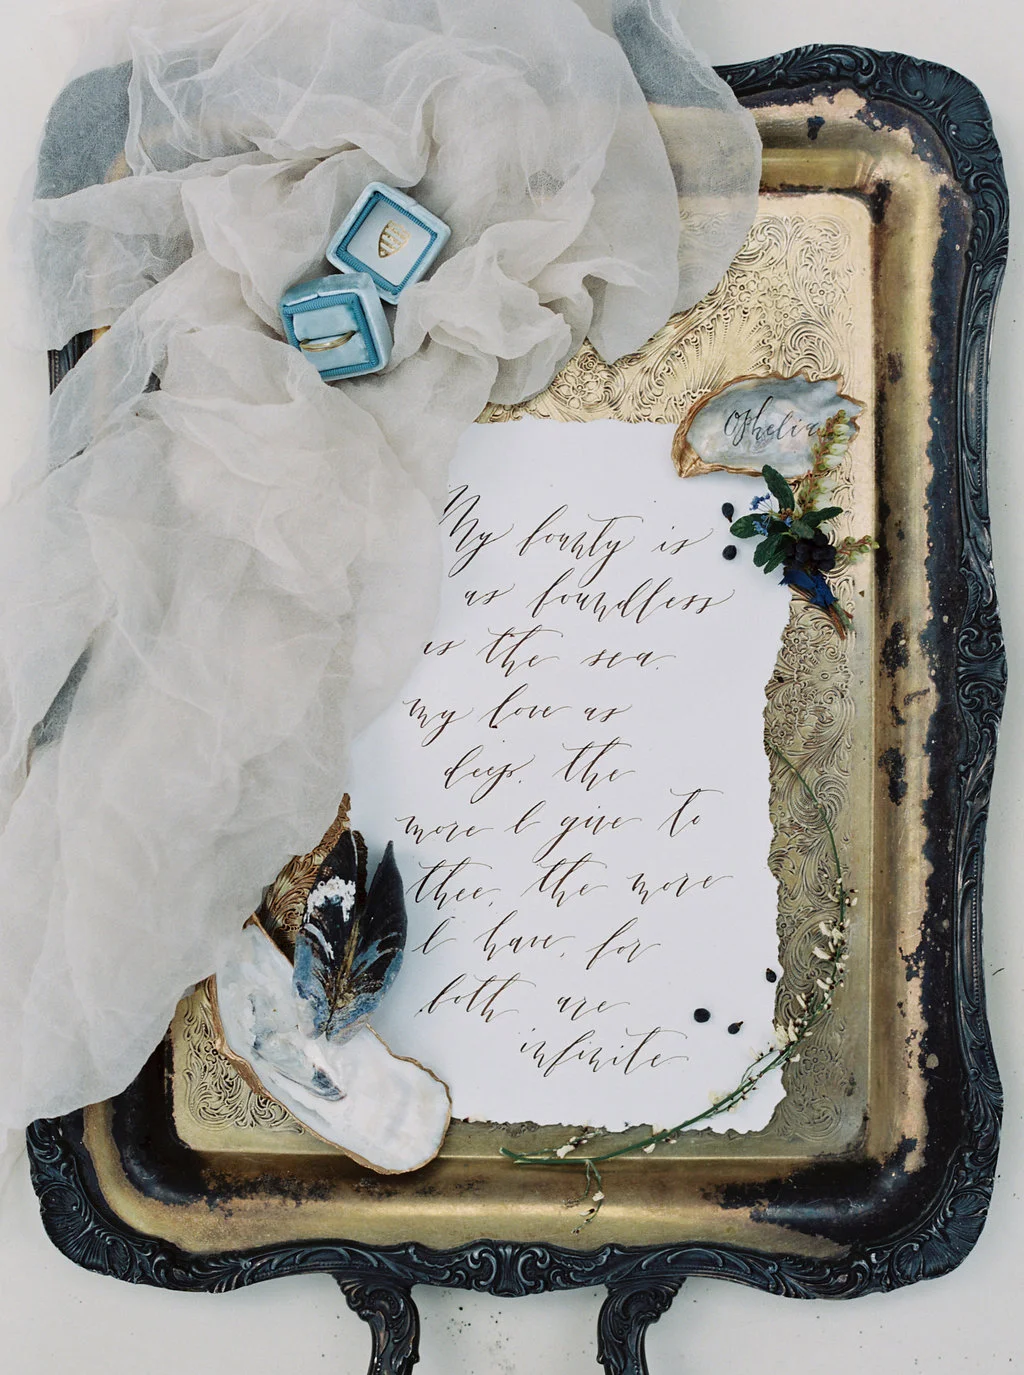 Ophelia
My bounty is
as boundless
as the sea.
my love as
deep. the
more I give to
thee, the more
I have, for
both are
infinite